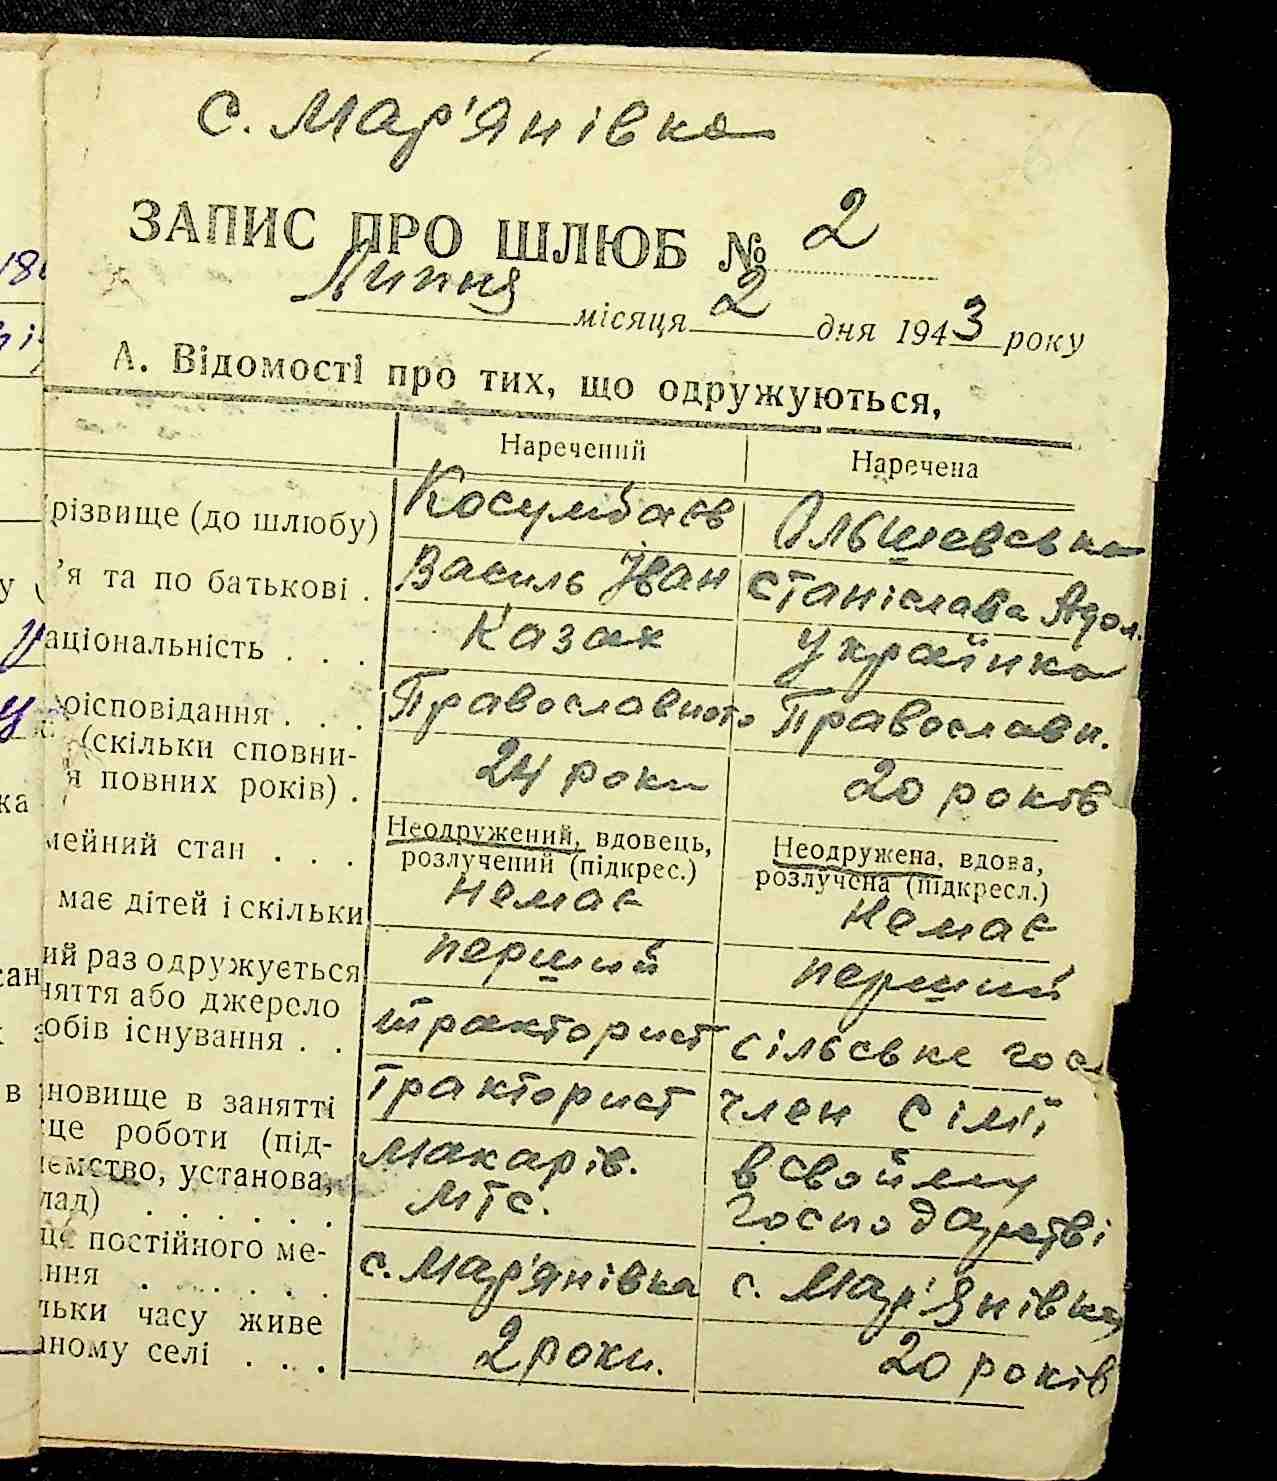 с. Мар'янівка
ЗАПИС ПРО ШЛЮБ № 2
Липня місяця 2 дня 1943 року
А. Відомості про тих, що одружуються,
Наречений Наречена
різвище (до шлюбу) Косумбаєв Ольшевська
'я та по батькові . Василь Іван Станіслава Адол.
аціональність . . . Казак Українка
росповідання . . . Православного Православн.
(скільки сповни-
я повних років) . 24 роки 20 років
мейний стан . . . Неодружений, вдовець, розлучений (підкрес.) Неодружена, вдова, розлучена (підкресл.)
має дітей і скільки немає немає
ий раз одружується перший перший
няття або джерело
обів існування . . тракторист сільське гос
новище в занятті тракторист член сім'ї
це роботи (під-
ємство, установа, Макарів. в свойму
лад) . . . . . . МТС. господарстві
це постійного ме-
ння . . . . . . с. Мар'янівка с. Мар'янівка
льки часу живе
аному селі . . . 2 роки. 20 років